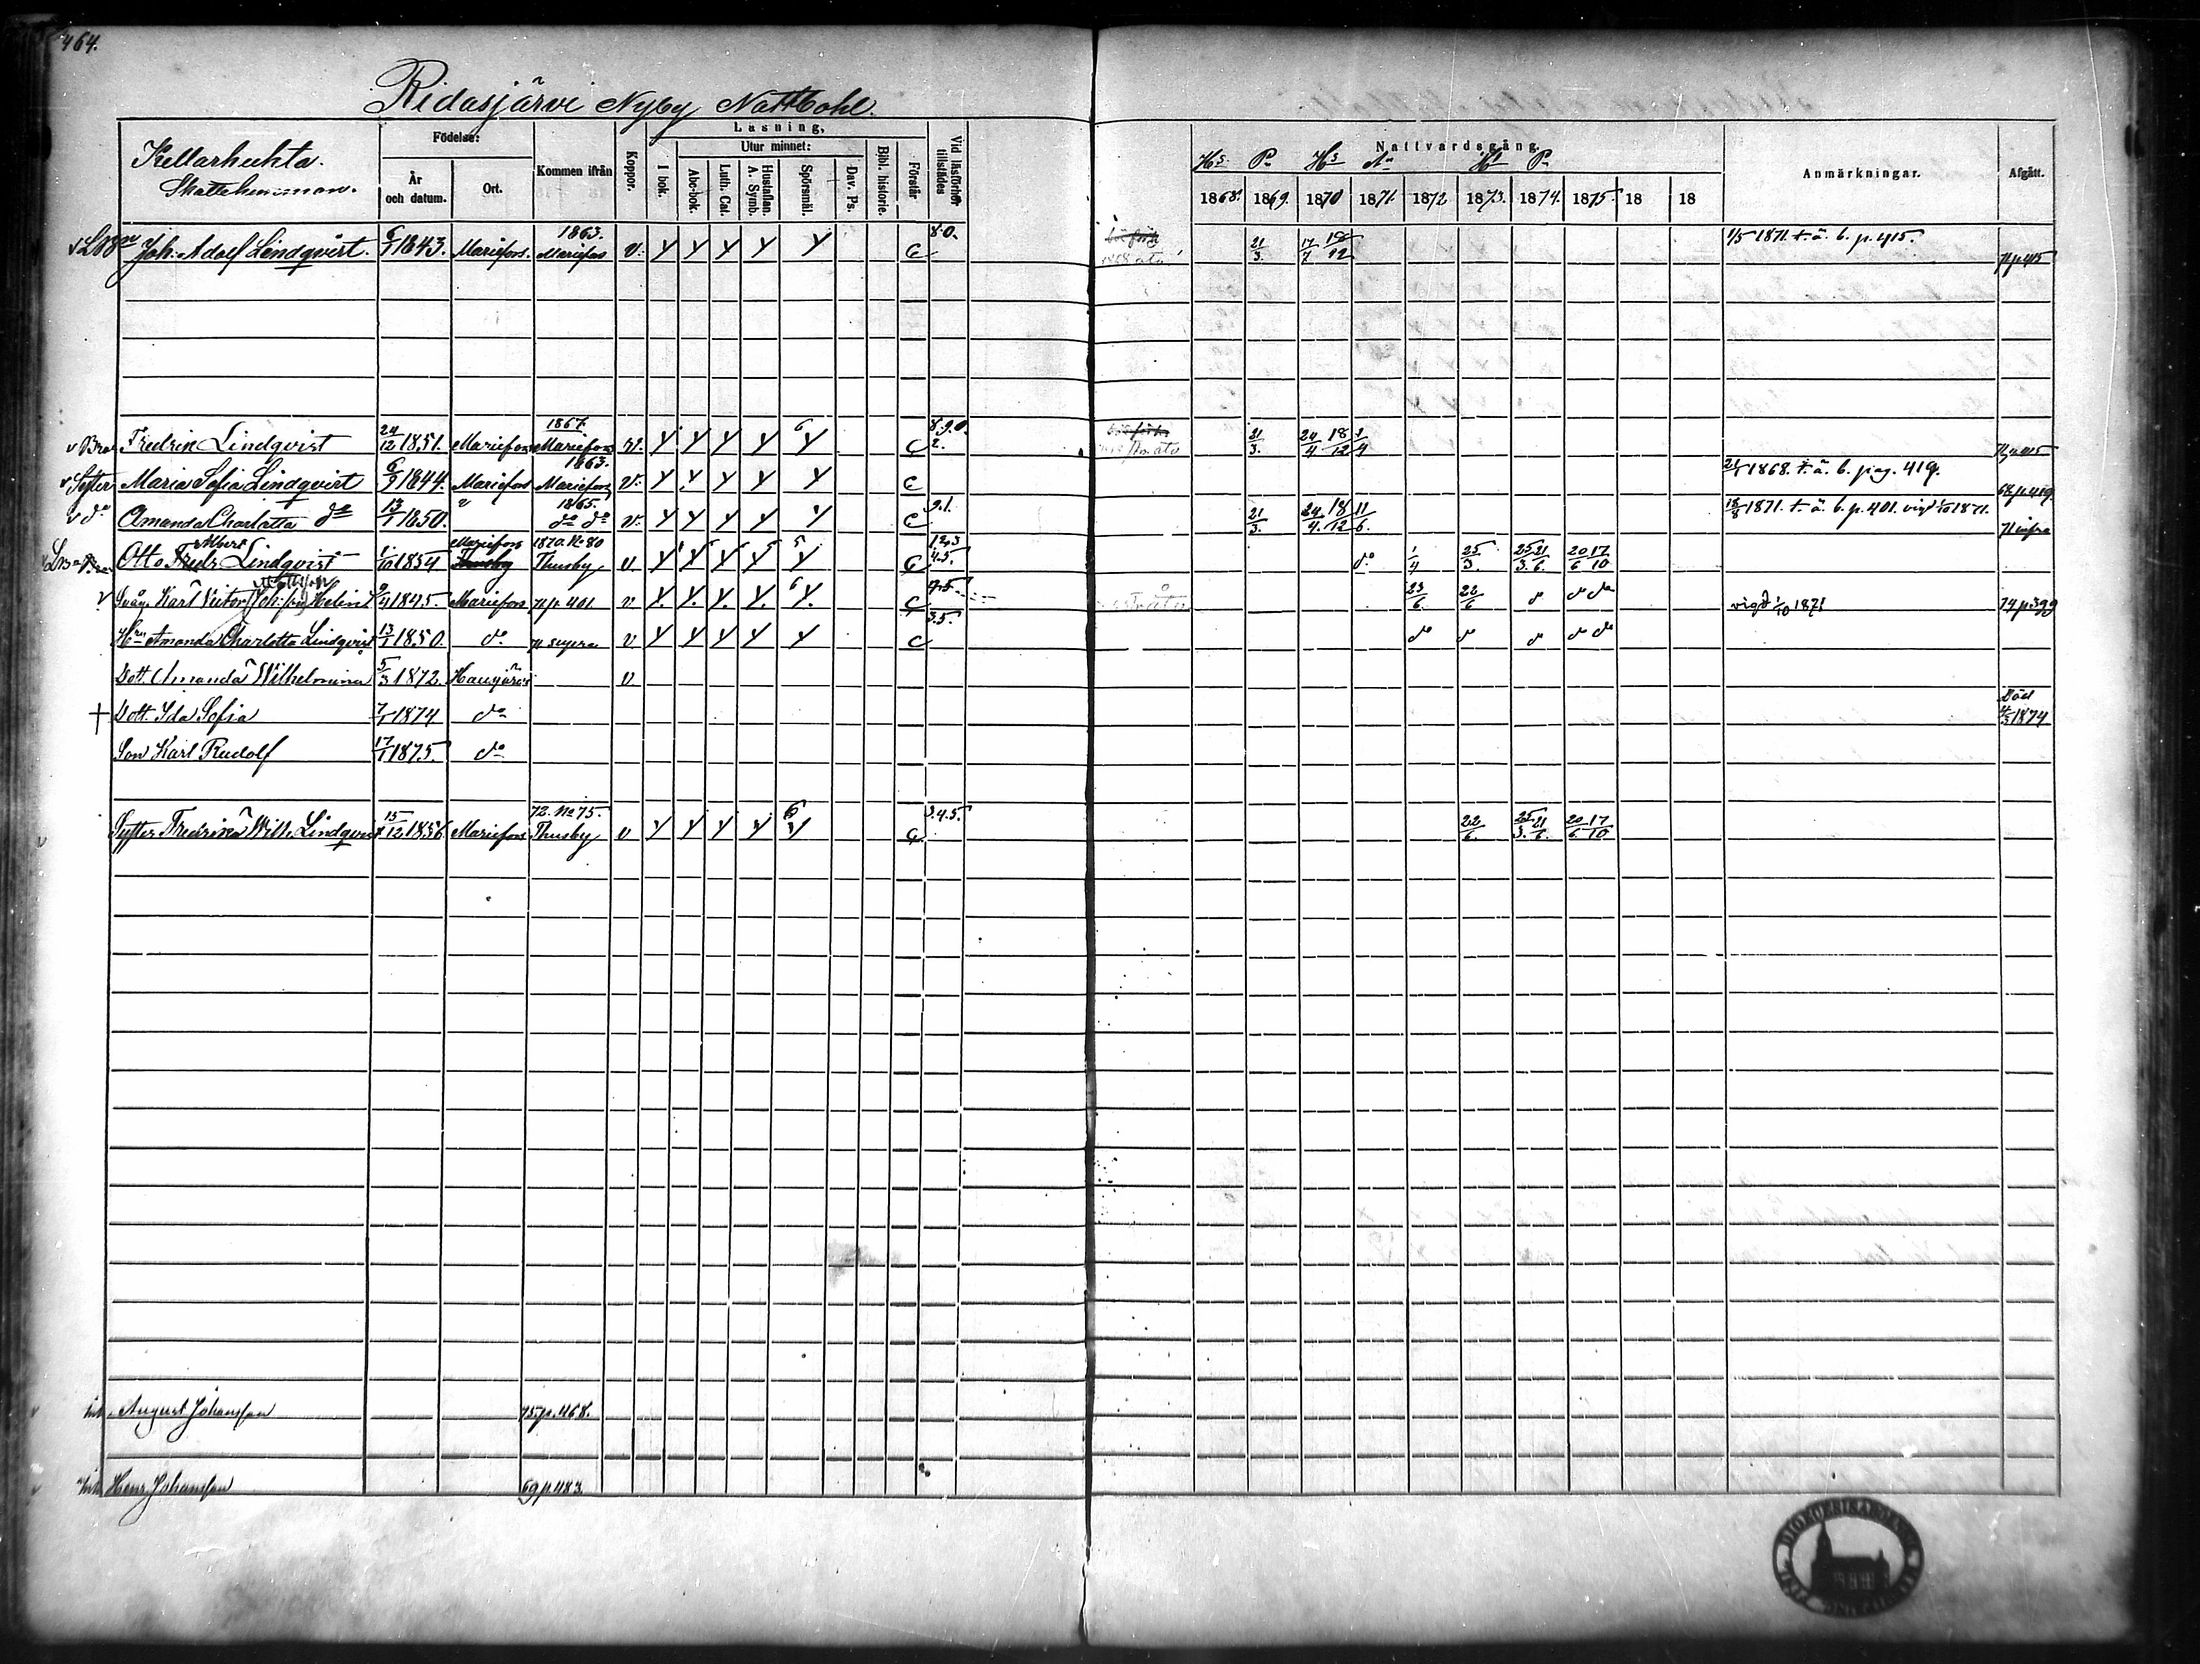 464.
Ridasjärvi Nyby Nattbohl.
Kellarhuhta.
Skattehemman.
Födelse:
År och datum.
Ort.
Kommen ifrån
Koppor.
Läsning,
I bok.
Utur minnet:
Abc-bok.
Luth. Cat.
Hustaflan. A. Symb.
Spörsmål.
Dav. Ps.
Bibl. historie.
Förstår
Vid läsförhör tillstädes
Nattvardsgång
1868. 1869. 1870 1871. 1872 1873. 1874. 1875. 18 18
Anmärkningar.
Afgått.
Joh. Adolf Lindqvist. 6/7 1843. Mariefors. 1863. Mariefors v. 8.0. 21/3. 17/7 18/12 1/5 1871. t. ä. b. p. 415. 71 p 415
v Bror Fredrik Lindqvist 24/12 1851. Mariefors 1867. Mariefors v. c 8.9.0. 2. 21/3. 24/4 18/12 1/4 71 p 415
v Syster Maria Sofia Lindqvist 6/9 1844. Mariefors 1863. Mariefors v. c 1868. t. ä. b. pag. 419. 68. p. 419
v do Amanda Charlotta do 13/1 1850. " 1865. do do v. c 9.1. 21/3. 24/4. 18/12 11/6. 1871. t. ä. b. p. 401. 1871. 71 infra
Otto Albert Lindqvist 1/10 1854 Mariefors 1870. No 80 Thusby v. c 1.2.3 4.5. do 1/4 25/3. 25/3. 21/6. 20/6 17/10
v Svåg. Karl Victor Helin 9/4 1845. Mariefors 71 p. 401 v c 23/6. 22/6 do do do vigd 1/10 1871 74 p 399
Hru Amanda Charlotta Lindqvist 13/1 1850. do supra v. c 3.5. do do do do do
Dott. Amanda Wilhelmina 5/3 1872. Hausjärvi v
† Dott. Ida Sofia 7/1 1874 do Död 4/5 1874
Son Karl Rudolf 17/1 1875. do
Syster Fredrika Wilh. Lindqvist 15/12 1856. Mariefors 72. No 75. Thusby v c 3.4.5. 22/6. 25/3. 21/6. 20/6 17/10
inh. August Johansson 75. p. 468.
inh Henr. Johansson 69 p. 483.